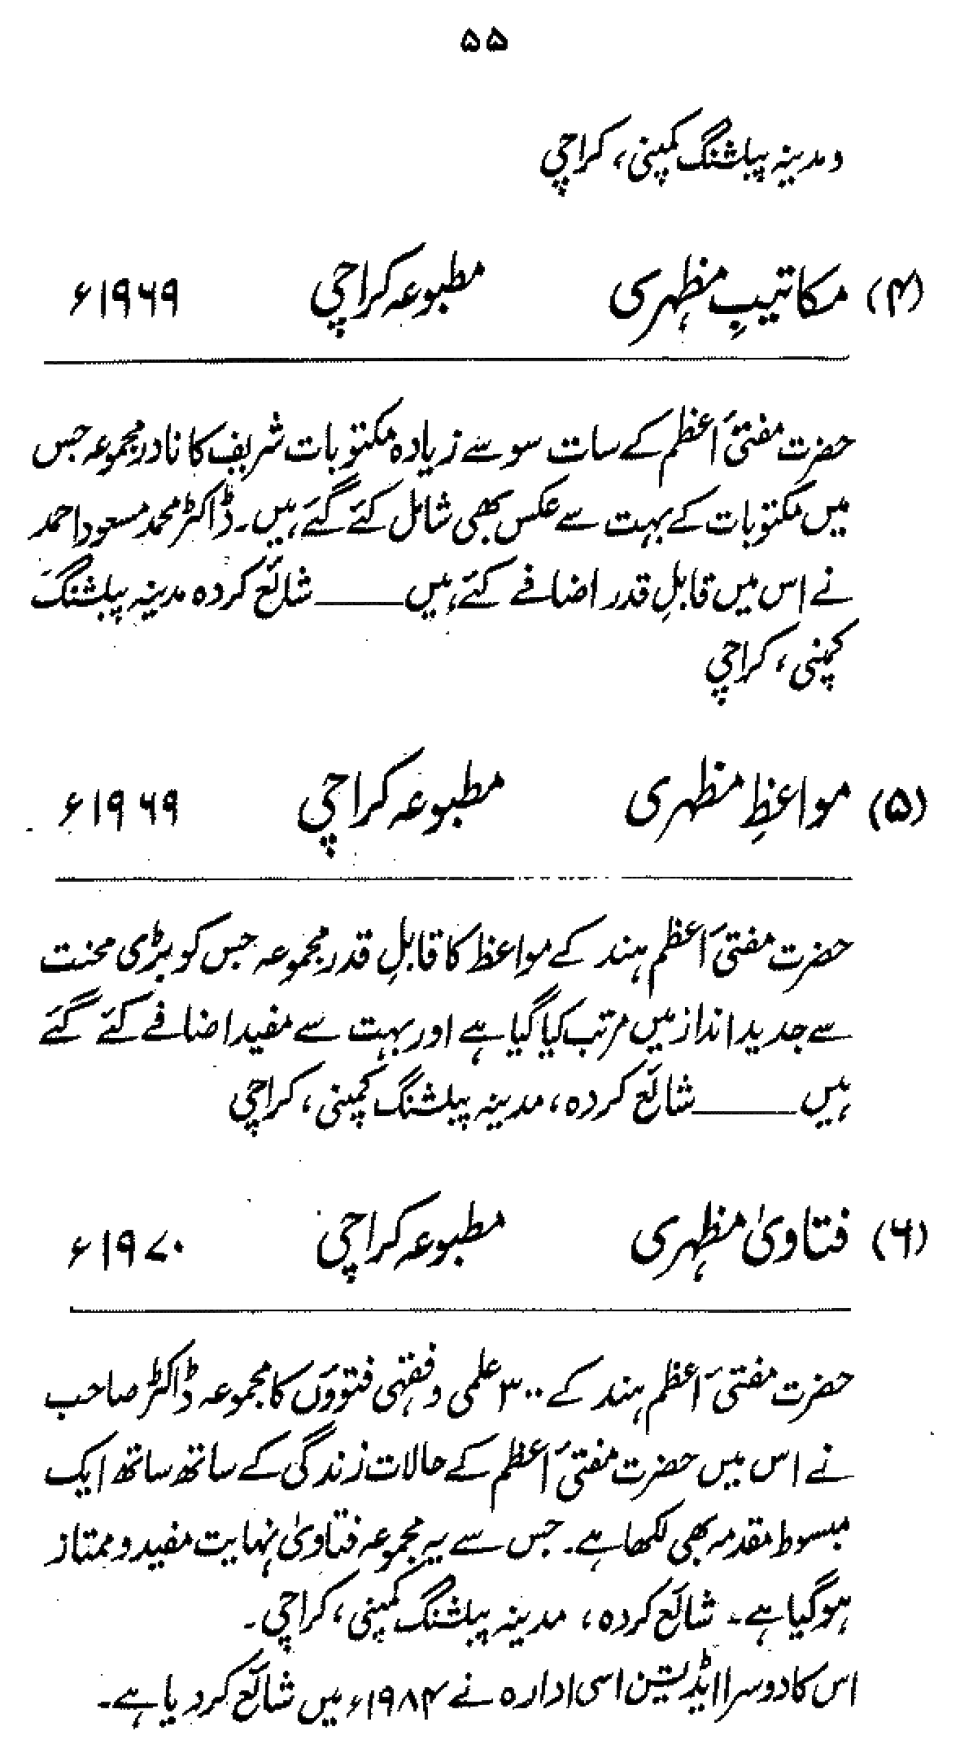 ۵۵
و مدینہ پبلشنگ کمپنی، کراچی
(۴) مکاتیبِ مظہری مطبوعہ کراچی ۱۹۶۹ء
حضرت مفتیٔ اعظم کے سات سو سے زیادہ مکتوبات شریف کا نادر مجموعہ جس
میں مکتوبات کے بہت سے عکس بھی شامل کئے گئے ہیں۔ ڈاکٹر محمد مسعود احمد
نے اس میں قابلِ قدر اضافے کئے ہیں ــــــــ شائع کردہ مدینہ پبلشنگ
کمپنی، کراچی
(۵) مواعظِ مظہری مطبوعہ کراچی ۱۹۶۹ء
حضرت مفتیٔ اعظم ہند کے مواعظ کا قابلِ قدر مجموعہ جس کو بڑی محنت
سے جدید انداز میں مرتب کیا گیا ہے اور بہت سے مفید اضافے کئے گئے
ہیں ــــــــ شائع کردہ، مدینہ پبلشنگ کمپنی، کراچی
(۶) فتاویٰ مظہری مطبوعہ کراچی ۱۹۷۰ء
حضرت مفتیٔ اعظم ہند کے ۳۰۰ علمی و فقہی فتوؤں کا مجموعہ ڈاکٹر صاحب
نے اس میں حضرت مفتیٔ اعظم کے حالات زندگی کے ساتھ ساتھ ایک
مبسوط مقدمہ بھی لکھا ہے۔ جس سے یہ مجموعہ فتاویٰ نہایت مفید و ممتاز
ہوگیا ہے۔ شائع کردہ، مدینہ پبلشنگ کمپنی، کراچی۔
اس کا دوسرا ایڈیشن اسی ادارہ نے ۱۹۸۴ء میں شائع کردیا ہے۔